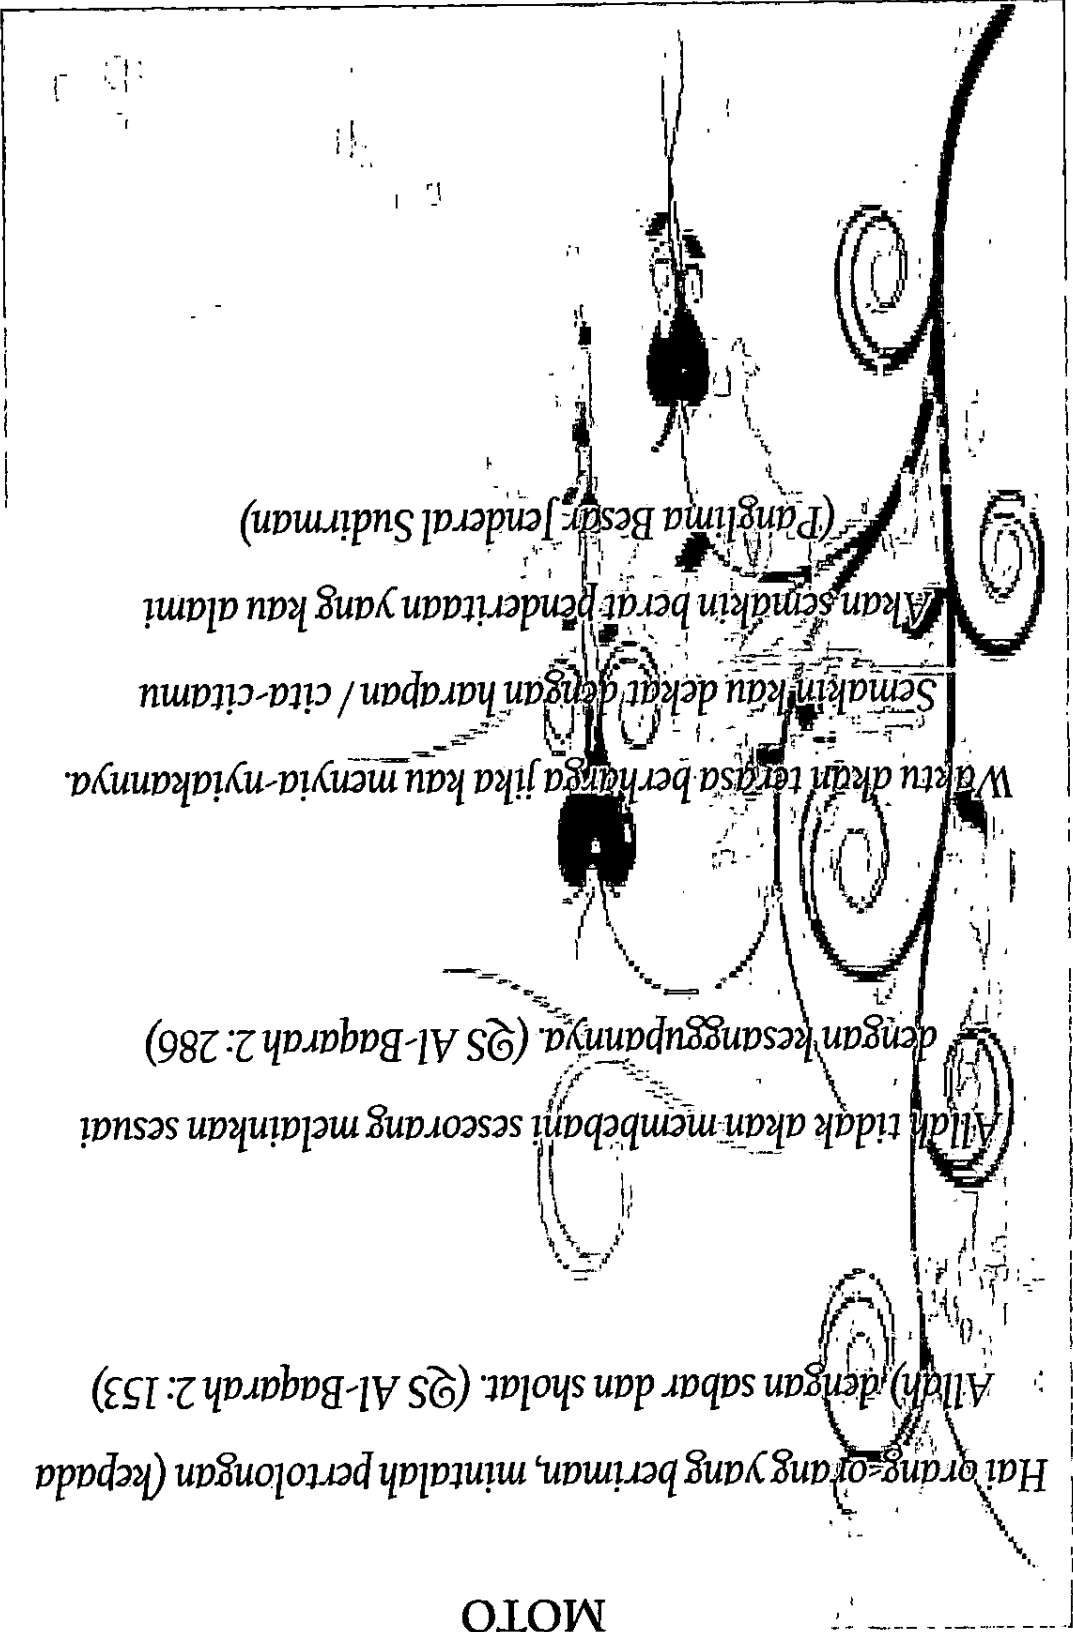 MOTO
Hai orang-orang yang beriman, mintalah pertolongan (kepada
Allah) dengan sabar dan sholat. (QS Al-Baqarah 2: 153)
Allah tidak akan membebani seseorang melainkan sesuai
dengan kesanggupannya. (QS Al-Baqarah 2: 286)
Waktu akan terasa berharga jika kau menyia-nyiakannya.
Semakin kau dekat dengan harapan / cita-citamu
Akan semakin berat penderitaan yang kau alami
(Panglima Besar Jenderal Sudirman)